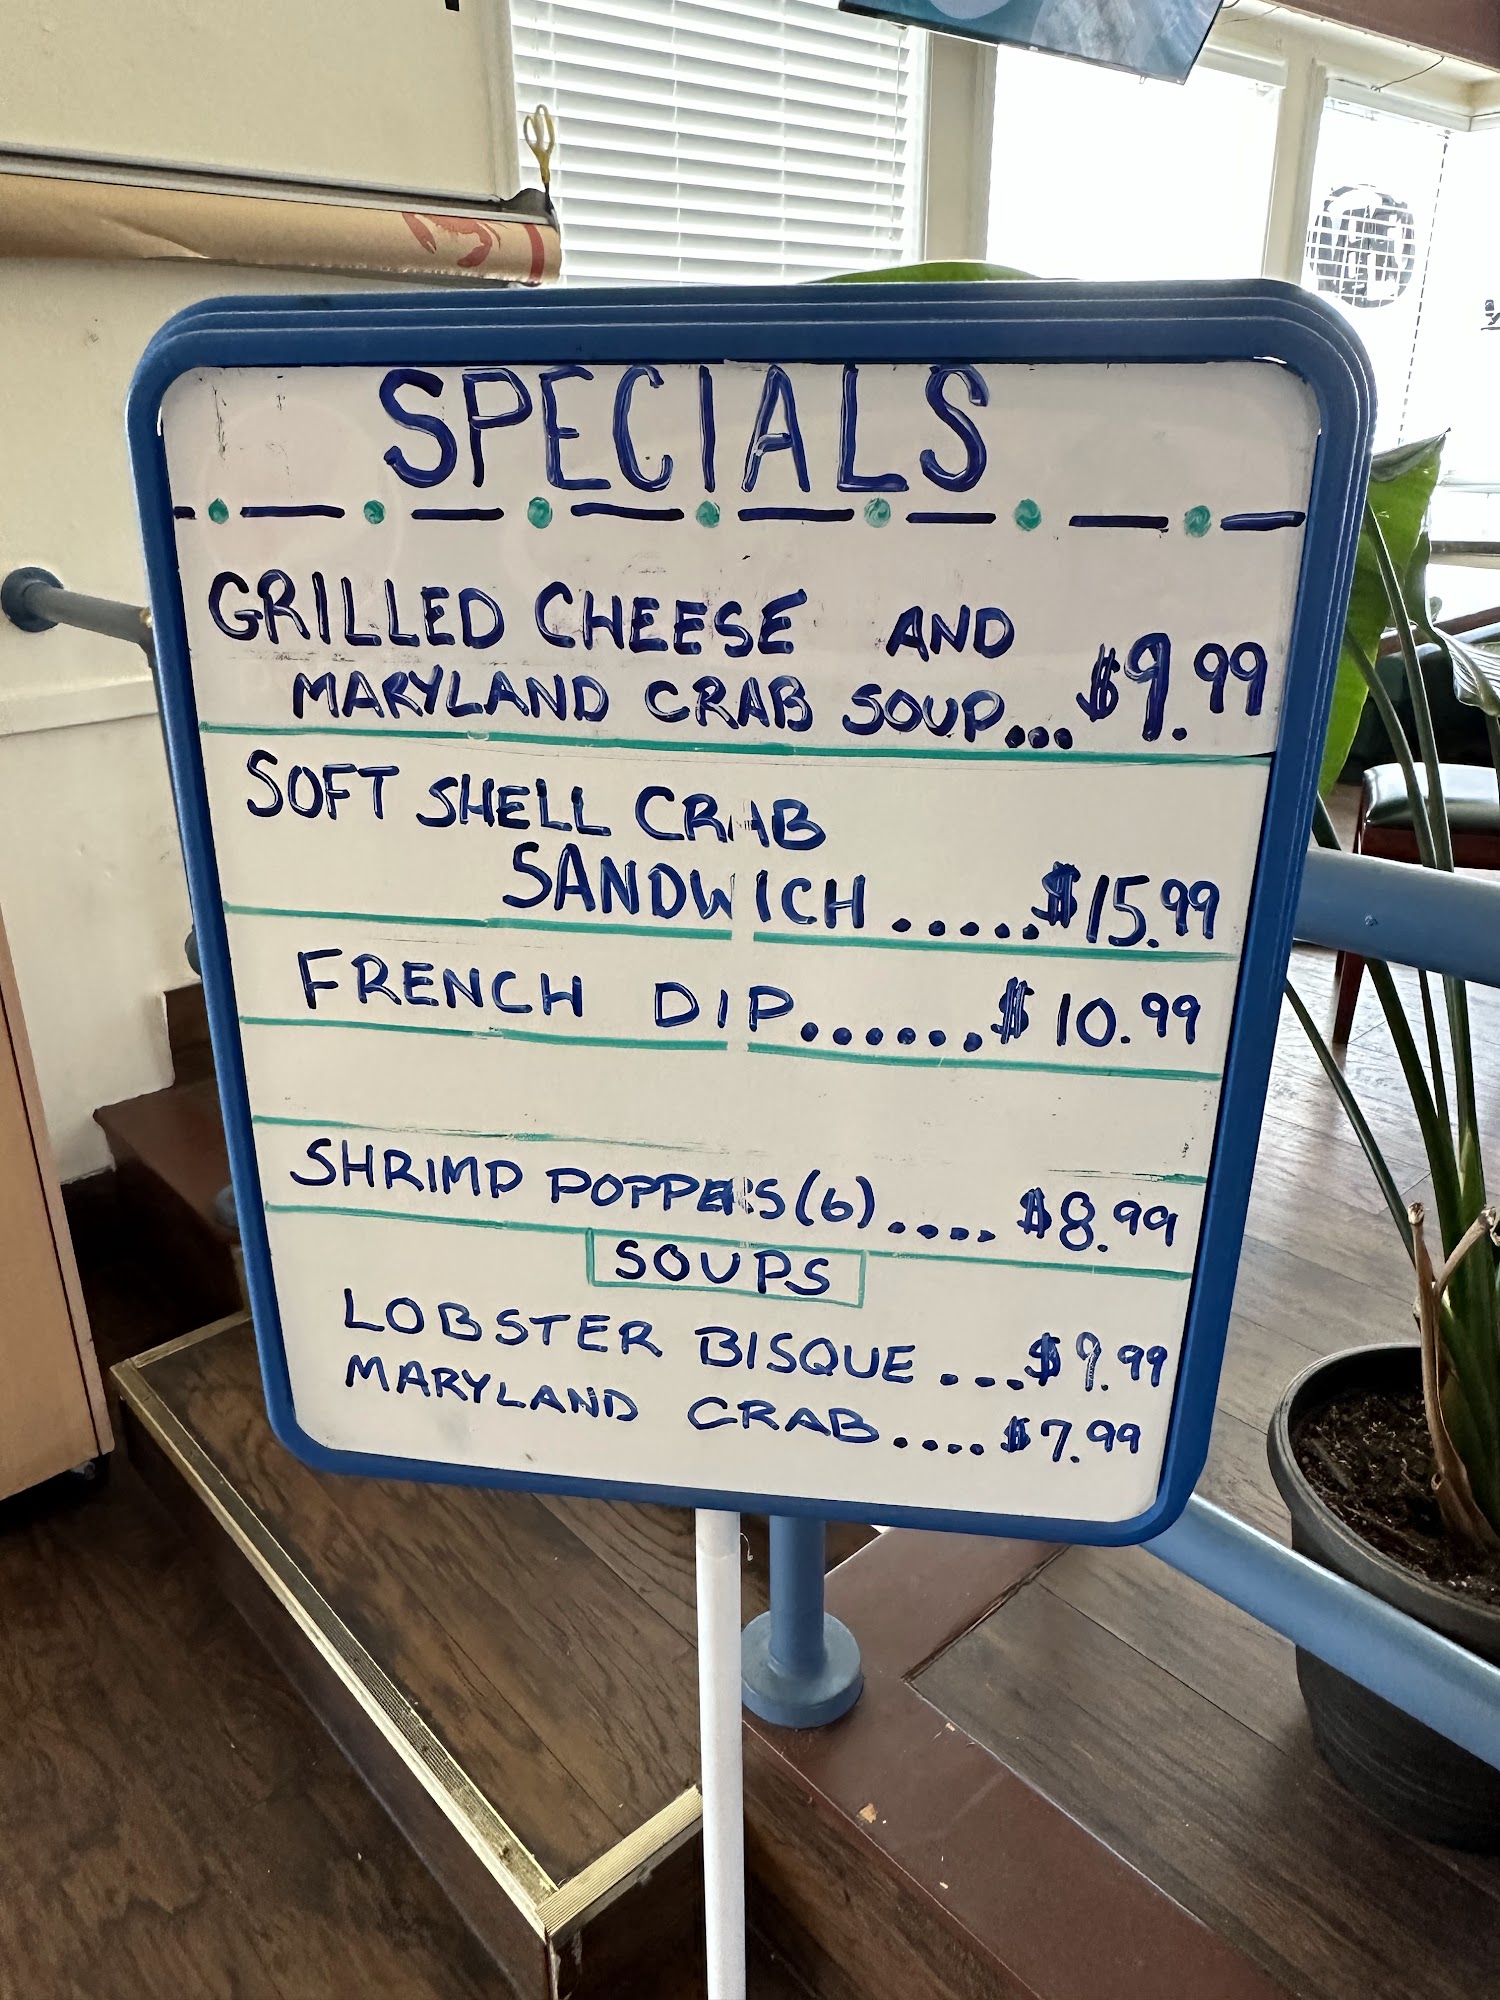 SPECIALS
GRILLED CHEESE AND
MARYLAND CRAB SOUP... $9.99
SOFT SHELL CRAB
SANDWICH.....$15.99
FRENCH DIP.......$10.99
SHRIMP POPPERS (6).... $8.99
SOUPS
LOBSTER BISQUE ....$9.99
MARYLAND CRAB....$7.99